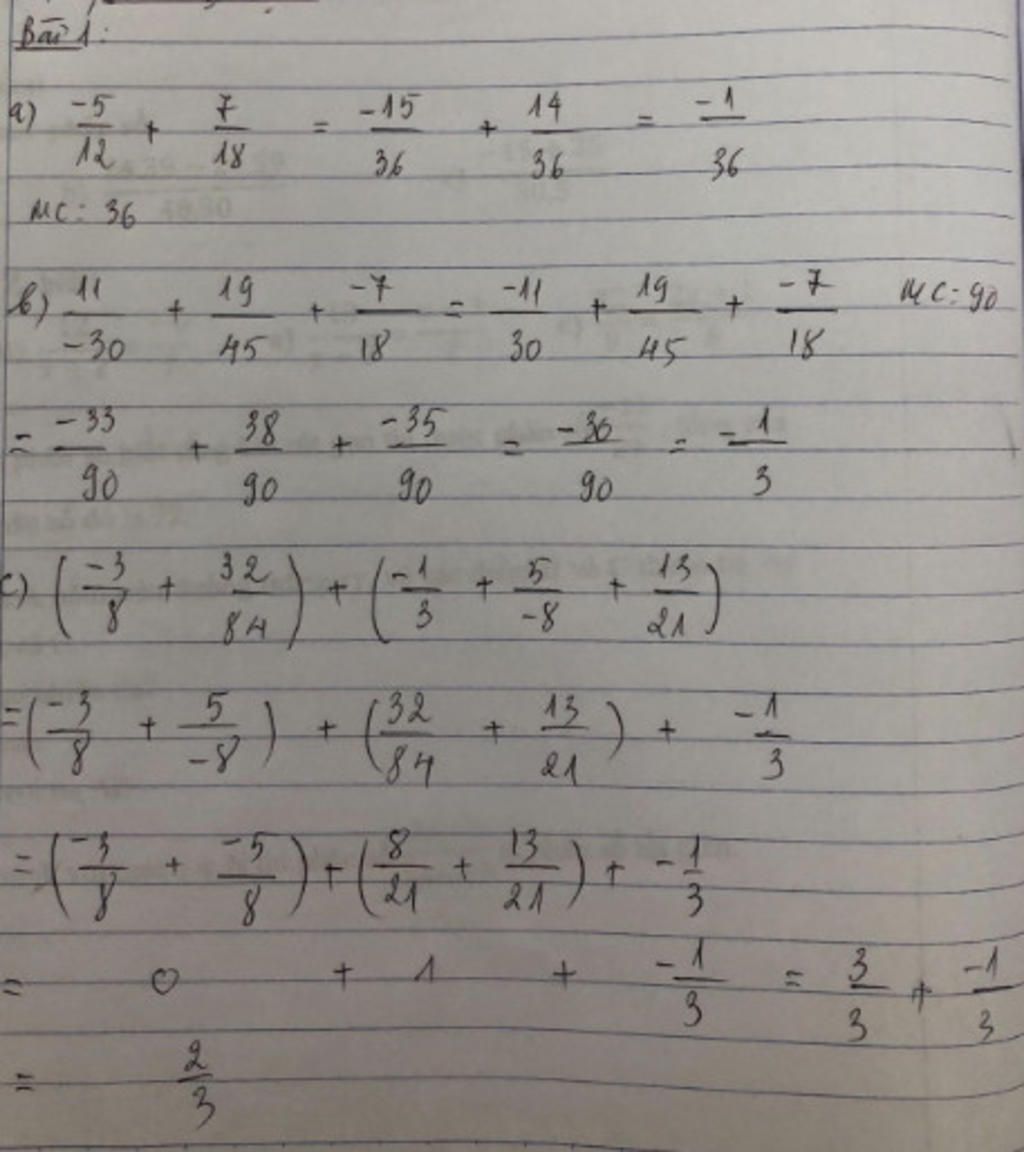 Bài 1:
a) -5/12 + 7/18 = -15/36 + 14/36 = -1/36
MC: 36
b) 11/-30 + 19/45 + -7/18 = -11/30 + 19/45 + -7/18 MC: 90
= -33/90 + 38/90 + -35/90 = -30/90 = -1/3
c) (-3/8 + 32/84) + (-1/3 + 5/-8 + 13/21)
= (-3/8 + 5/-8) + (32/84 + 13/21) + -1/3
= (-3/8 + -5/8) + (8/21 + 13/21) + -1/3
= 0 + 1 + -1/3 = 3/3 + -1/3
= 2/3